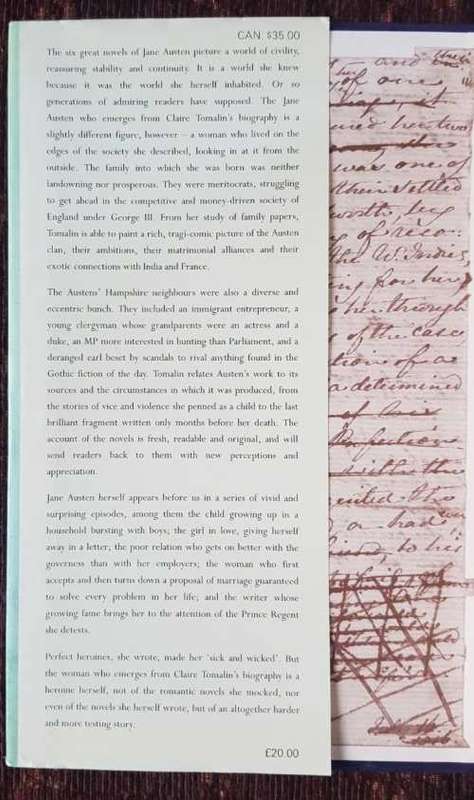 CAN. $35.00
The six great novels of Jane Austen picture a world of civility,
reassuring stability and continuity. It is a world she knew
because it was the world she herself inhabited. Or so
generations of admiring readers have supposed. The Jane
Austen who emerges from Claire Tomalin's biography is a
slightly different figure, however – a woman who lived on the
edges of the society she described, looking in at it from the
outside. The family into which she was born was neither
landowning nor prosperous. They were meritocrats, struggling
to get ahead in the competitive and money-driven society of
England under George III. From her study of family papers,
Tomalin is able to paint a rich, tragi-comic picture of the Austen
clan, their ambitions, their matrimonial alliances and their
exotic connections with India and France.
The Austens' Hampshire neighbours were also a diverse and
eccentric bunch. They included an immigrant entrepreneur, a
young clergyman whose grandparents were an actress and a
duke, an MP more interested in hunting than Parliament, and a
deranged earl beset by scandals to rival anything found in the
Gothic fiction of the day. Tomalin relates Austen's work to its
sources and the circumstances in which it was produced, from
the stories of vice and violence she penned as a child to the last
brilliant fragment written only months before her death. The
account of the novels is fresh, readable and original, and will
send readers back to them with new perceptions and
appreciation.
Jane Austen herself appears before us in a series of vivid and
surprising episodes, among them the child growing up in a
household bursting with boys; the girl in love, giving herself
away in a letter; the poor relation who gets on better with the
governess than with her employers; the woman who first
accepts and then turns down a proposal of marriage guaranteed
to solve every problem in her life; and the writer whose
growing fame brings her to the attention of the Prince Regent
she detests.
Perfect heroines, she wrote, made her 'sick and wicked'. But
the woman who emerges from Claire Tomalin's biography is a
heroine herself, not of the romantic novels she mocked, nor
even of the novels she herself wrote, but of an altogether harder
and more testing story.
£20.00
and
of one
was one of
their settled
of reco-
the W. Indies,
ing for her
her through
of the case
tion of a
a determined
Perfection
a had
to his